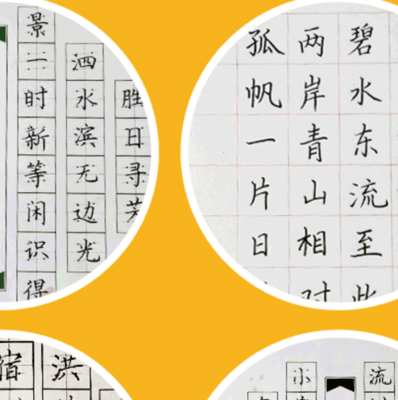 胜日寻芳
泗水滨无边光
景一时新等闲识得
碧水东流至此
两岸青山相对
孤帆一片日
洪
宿
流
小